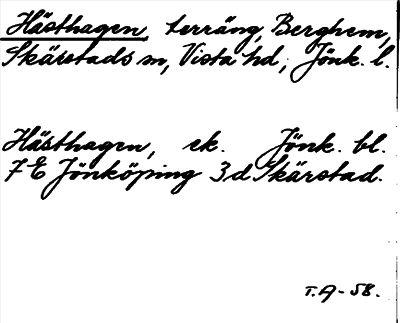 Hästhagen terräng, Berghem,
Skärstads sn, Vista hd, Jönk. l.
Hästhagen, ek. Jönk. bl.
7 E Jönköping 3 d Skärstad.
T.A-58.